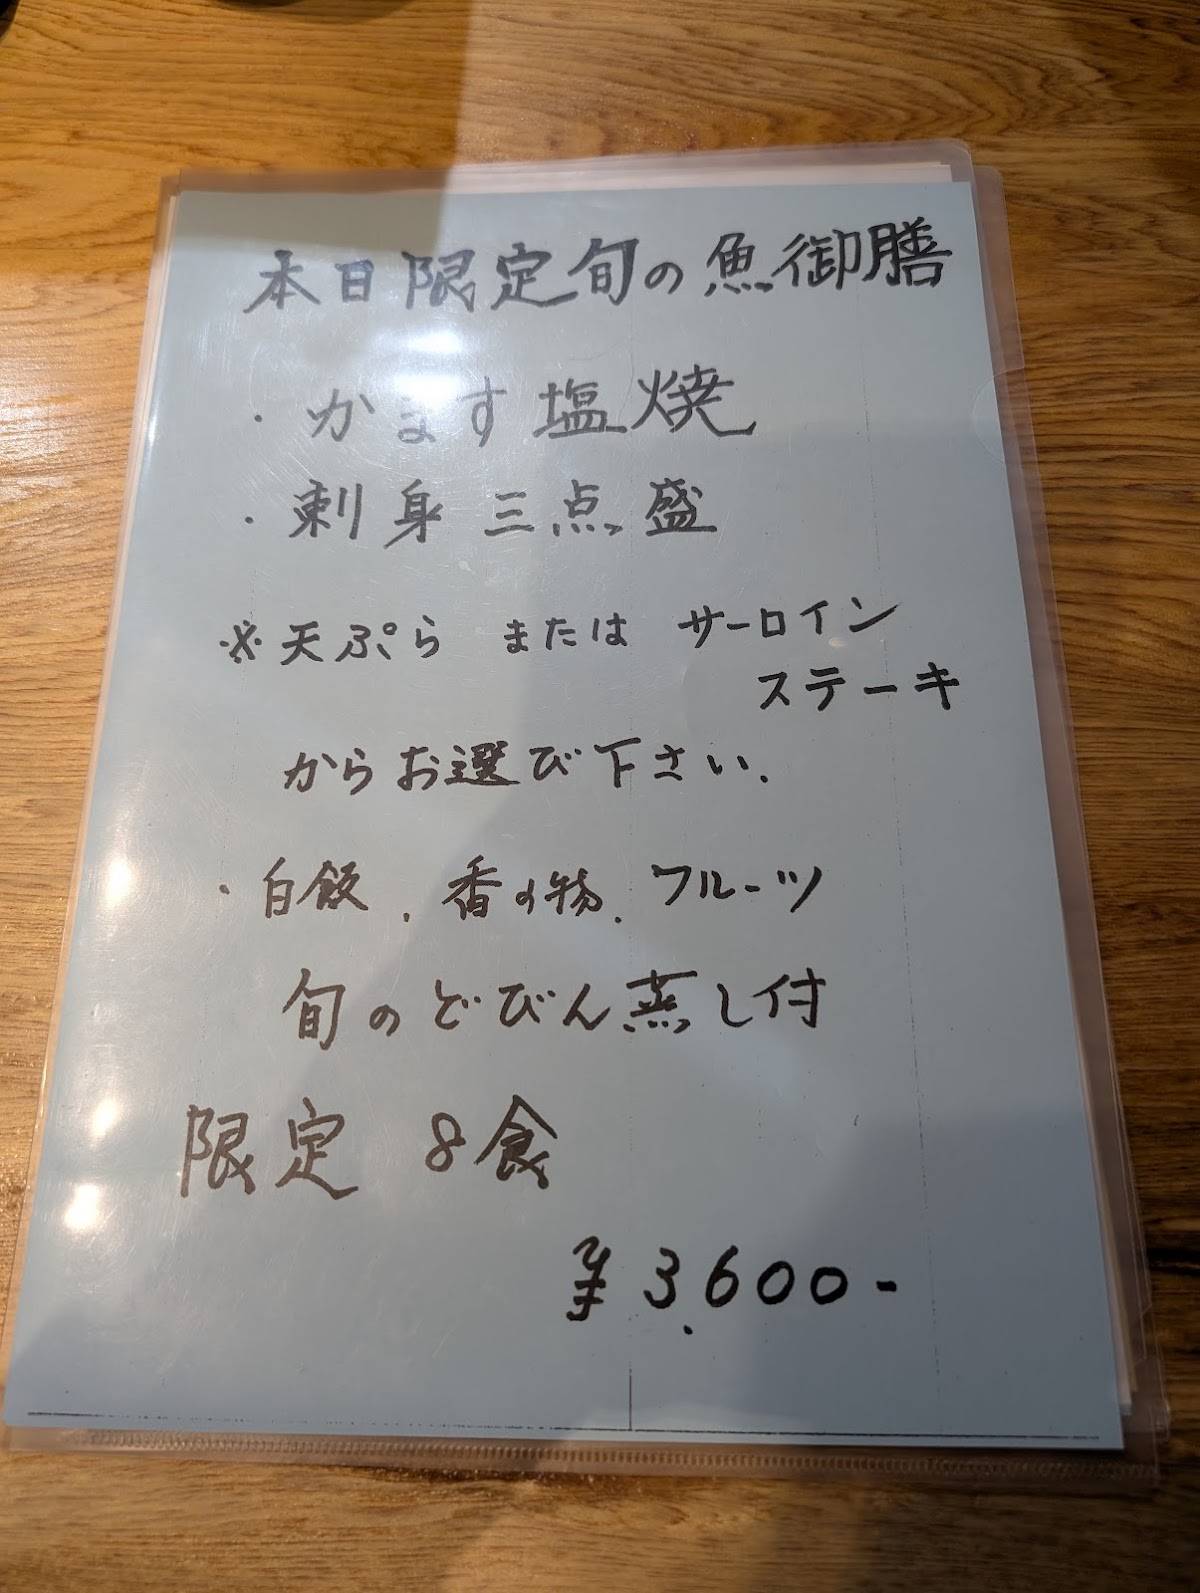 本日限定旬の魚御膳
・かます塩焼
・刺身三点盛
※天ぷら または サーロイン
ステーキ
からお選び下さい.
・白飯、香の物、フルーツ
旬のどびん蒸し付
限定 8食
¥3,600-